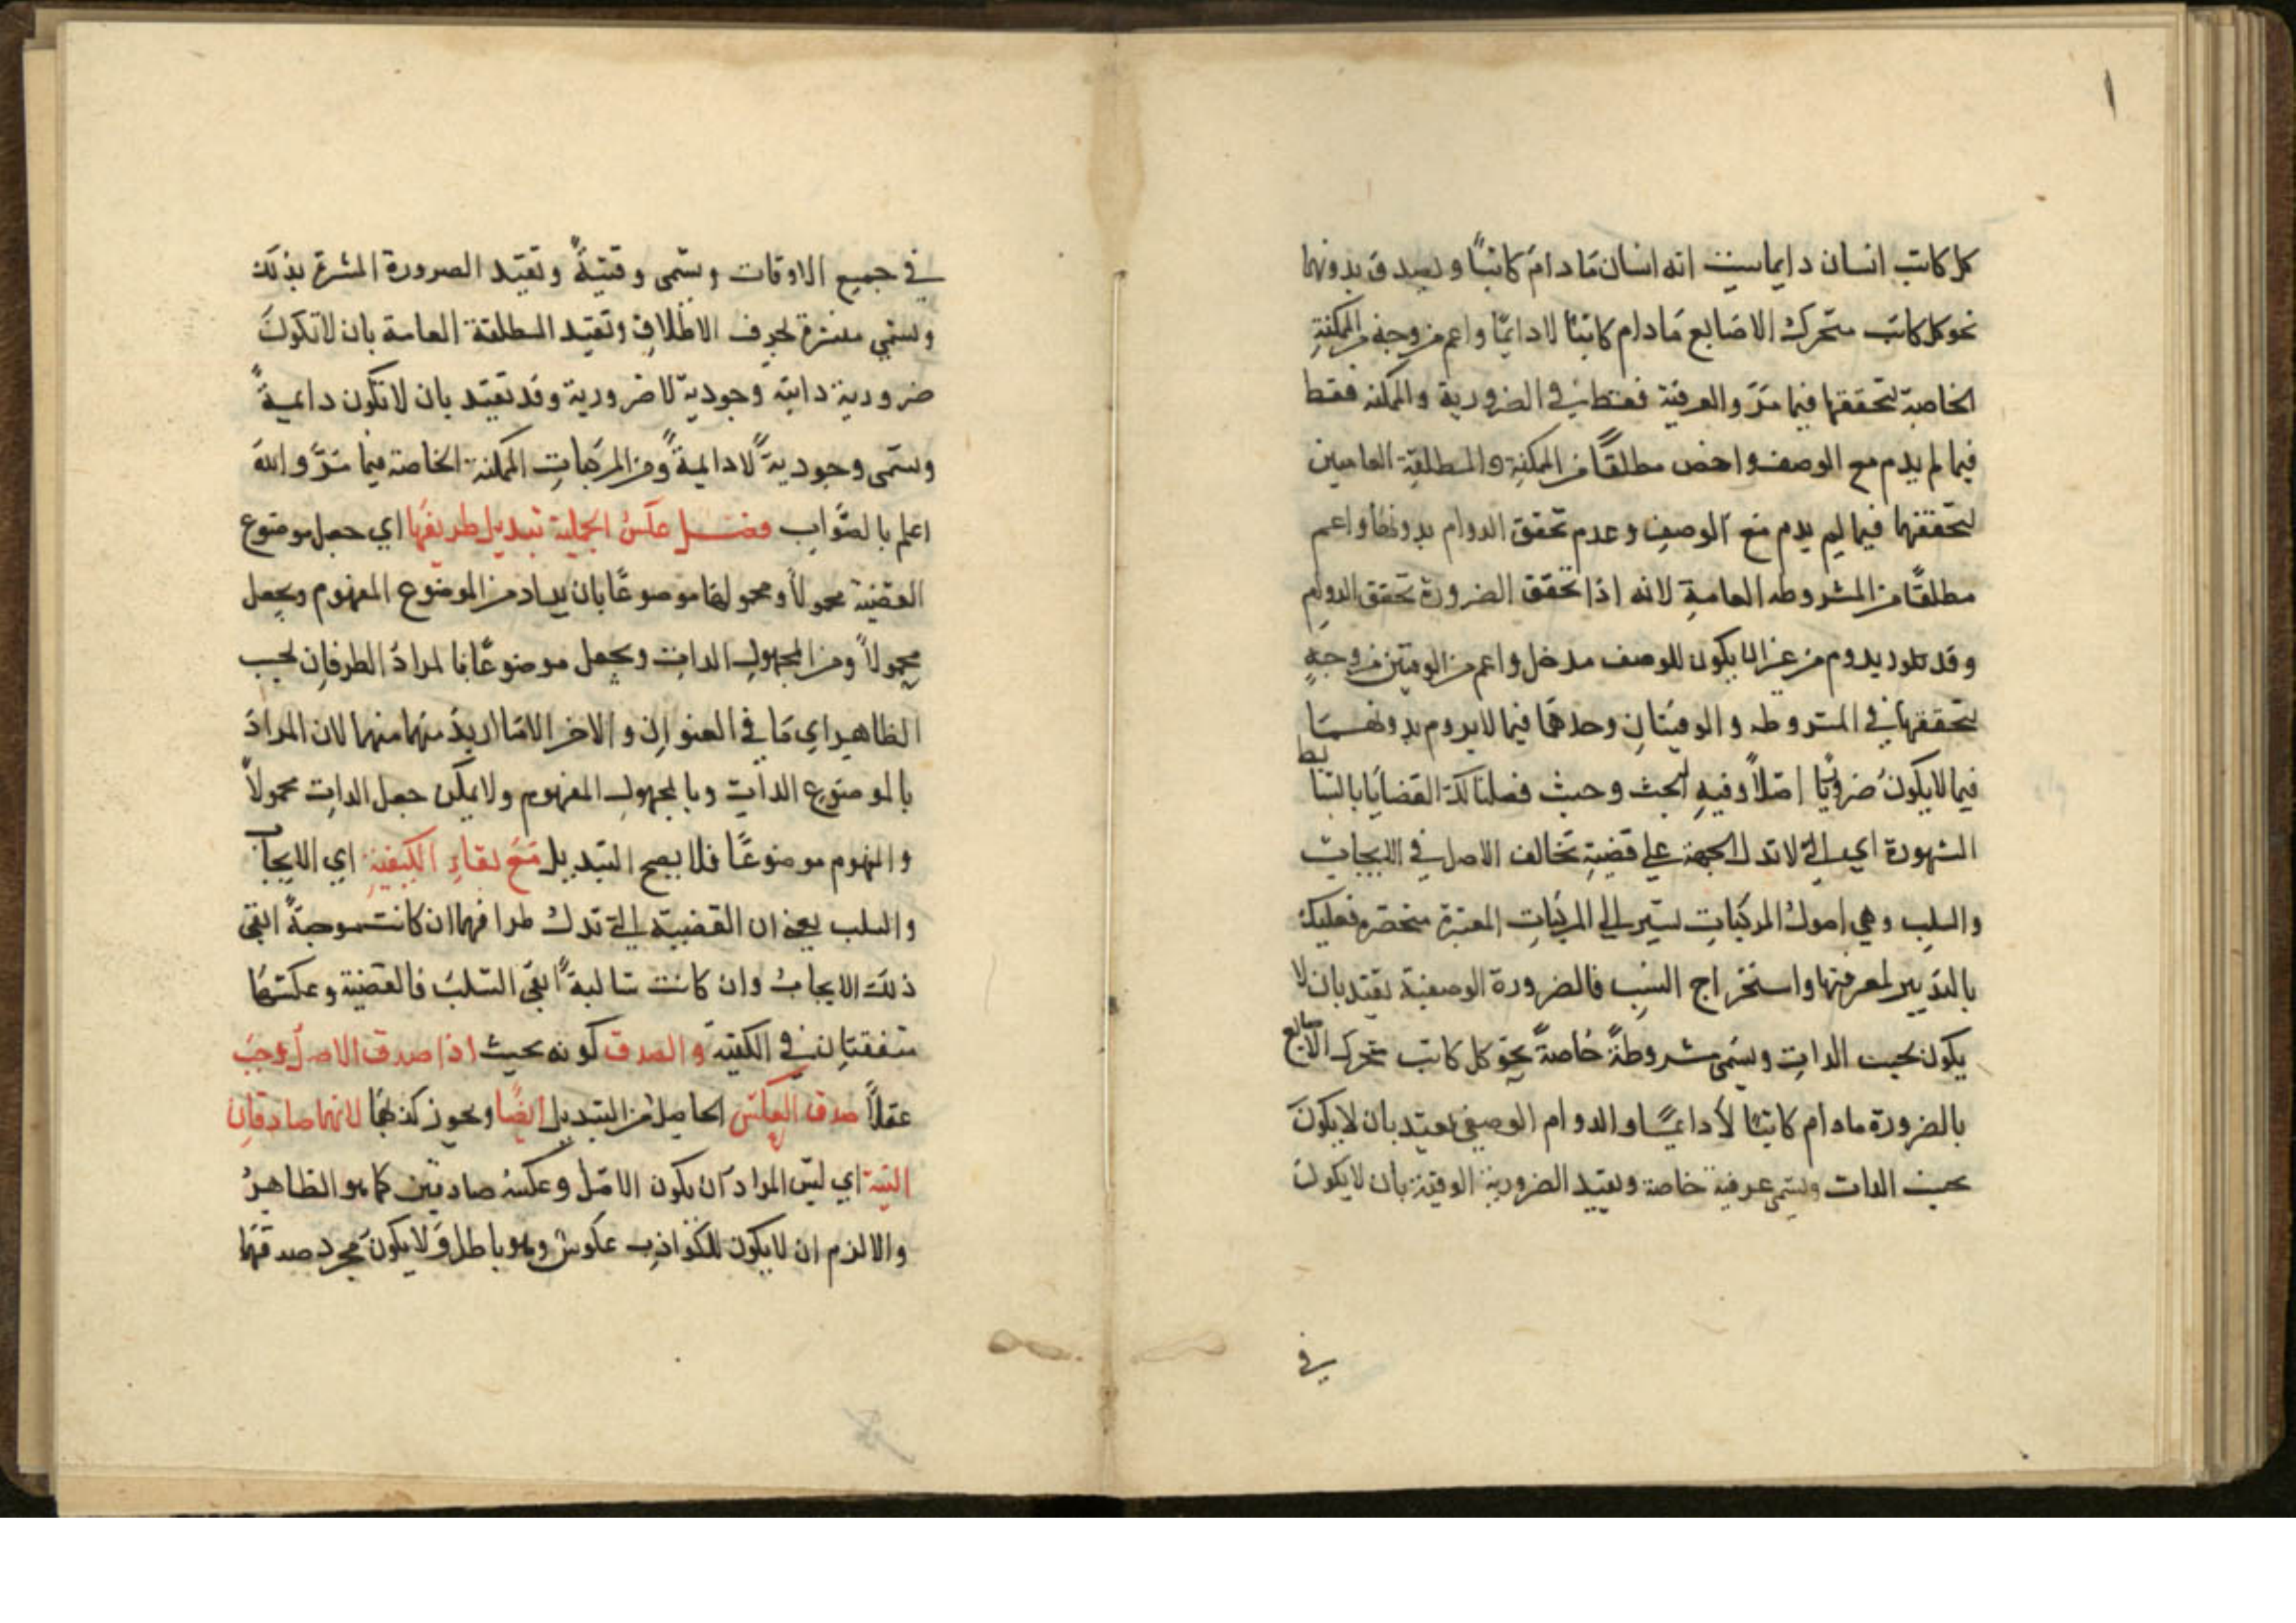 ١
كل كاتب انسان دايما بحيث انه انسان مَا دامَ كاتبًا ويصدق بدونهما
نحو كل كاتب متحرك الاصَابع مَادام كاتبًا لا دايمًا واعم من وجهٍ من الممكنةِ
الخاصة لتحققها فيما مَرّ والعرفية فقط في الضرورية والممكنه فقط
فيما لم يدم مع الوصف واخص مطلقًا من الممكنةِ والمطلقةِ العامين
لتحققهما فيما لم يدم مَع الوصفِ وعدم تحقق الدوام بدونهَما واعم
مطلقًا من المشروطه العامةِ لانه اذا تحقق الضرورة تحقق الدوام
وقد يدوم من غير ان يكون للوصف مدخل واعم من الوقتين من وجهٍ
لتحققها في المشروطه والوقتيتانِ وحدهمَا فيما لا يدوم بدونهمَا
فيما لا يكونُ ضروريًا اصلاً وفيهِ بحث وحيث فصلنا لك القضايَا بالبسَايط
المشهورة اي التي لا تدل الجهة علي قضيةٍ تخالف الاصل في الايجاب
والسلبِ وهي اصولُ المركباتِ نشير الي المركباتِ المعتبرة مختصرة فعليك
بالتدَبير لمعرفتها واستخراج النسَبِ فالضرورة الوصفية تقيد بان لا
يكون بحسب الذاتِ وتسَمى مشروطةً خاصةً نحوَ كل كاتب متحرك الاصابع
بالضرورة مادام كاتبًا لا دايمًا والدوام الوصفي يقيد بان لا يكونَ
بحسب الذات وتسمى عرفية خاصة وتقيد الضرورية الوقتية بان لا يكون
في
في جميع الاوقات وتسَمى وقتيةً وتقيّد الضرورة المنتشرة بذلك
وتسَمي منتشرة بحذف الاطلاقِ وتقيد المطلقة العامة بان لا تكونَ
ضرورية ذاتية وجودية لا ضرورية وقد تقيّد بان لا تكون دايمةً
وتسَمى وجوديةً لا دايمةً ومن المركباتِ الممكنة الخاصة فيما مَرَّ والله
اعلم بالصَّوابِ فصْــل عكسُ الحملية تبديل طرفيهَا اي جعل موضوع
القضية محمولاً ومحمولهَا موضوعًا بان يراد من الموضوع المفهوم ويجعل
محمولاً ومن المحمولِ الذات ويجعل موضوعًا فالمرادُ الطرفانِ بحسب
الظاهر اي مَا في العنوانِ والاخر الامَا اريدَ منهما منهما لان المرادَ
بالموضوعِ الذات وبالمحمولِ المفهوم ولا يمكن جعل الذات محمولاً
والمفهوم موضوعًا فلا يصح التبديل مَعَ بقاءِ الكيفيةِ اي الايجاب
والسلب يعني ان القضية التي تدل طرافهما ان كانت موجبةً ابقي
ذلك الايجابُ وان كانت سَالبةً ابقَي السَّلبُ فالقضية وعكسُهَا
متفقتانِ في الكيفيّة والصدق كونه بحيث اذا صدق الاصل وجبَ
عقلاً صدق العكس الحاصل من التبديل ايضًا ويجوز كذبهُما لا انهما صادقانِ
البتة اي ليسَ المرادُ ان يكون الاصل وعكسه صادقين كما هو الظاهرُ
والا لزم ان لا يكون للكواذبِ عكوسٌ وهو باطل وَلا يكونَ مجرد صدقهَا